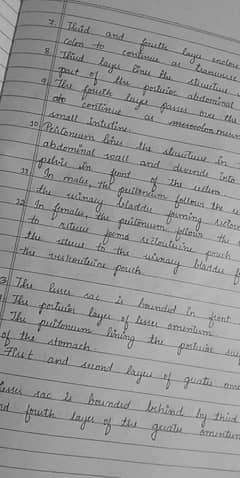 7. Third and fourth layer enclose
colon to continue as transverse
8 Third layer lines the structure
part of the posterior abdominal
9 The fourth layer passes over the
to continue as mesocolon
small intestine.
10 Peritoneum lines the structure in
abdominal wall and descends into
pelvis in front of the rectum
11 In males, the peritoneum follows the
the urinary bladder forming
12 In females, the peritoneum follows the
to uterus forms rectouterine pouch
the uterus to the urinary bladder
the vesicouterine pouch.
The lesser sac is bounded in front
The posterior layer of lesser omentum
The peritoneum lining the posterior
of the stomach
First and second layer of greater
lesser sac is bounded behind by third
fourth layer of the greater omentum